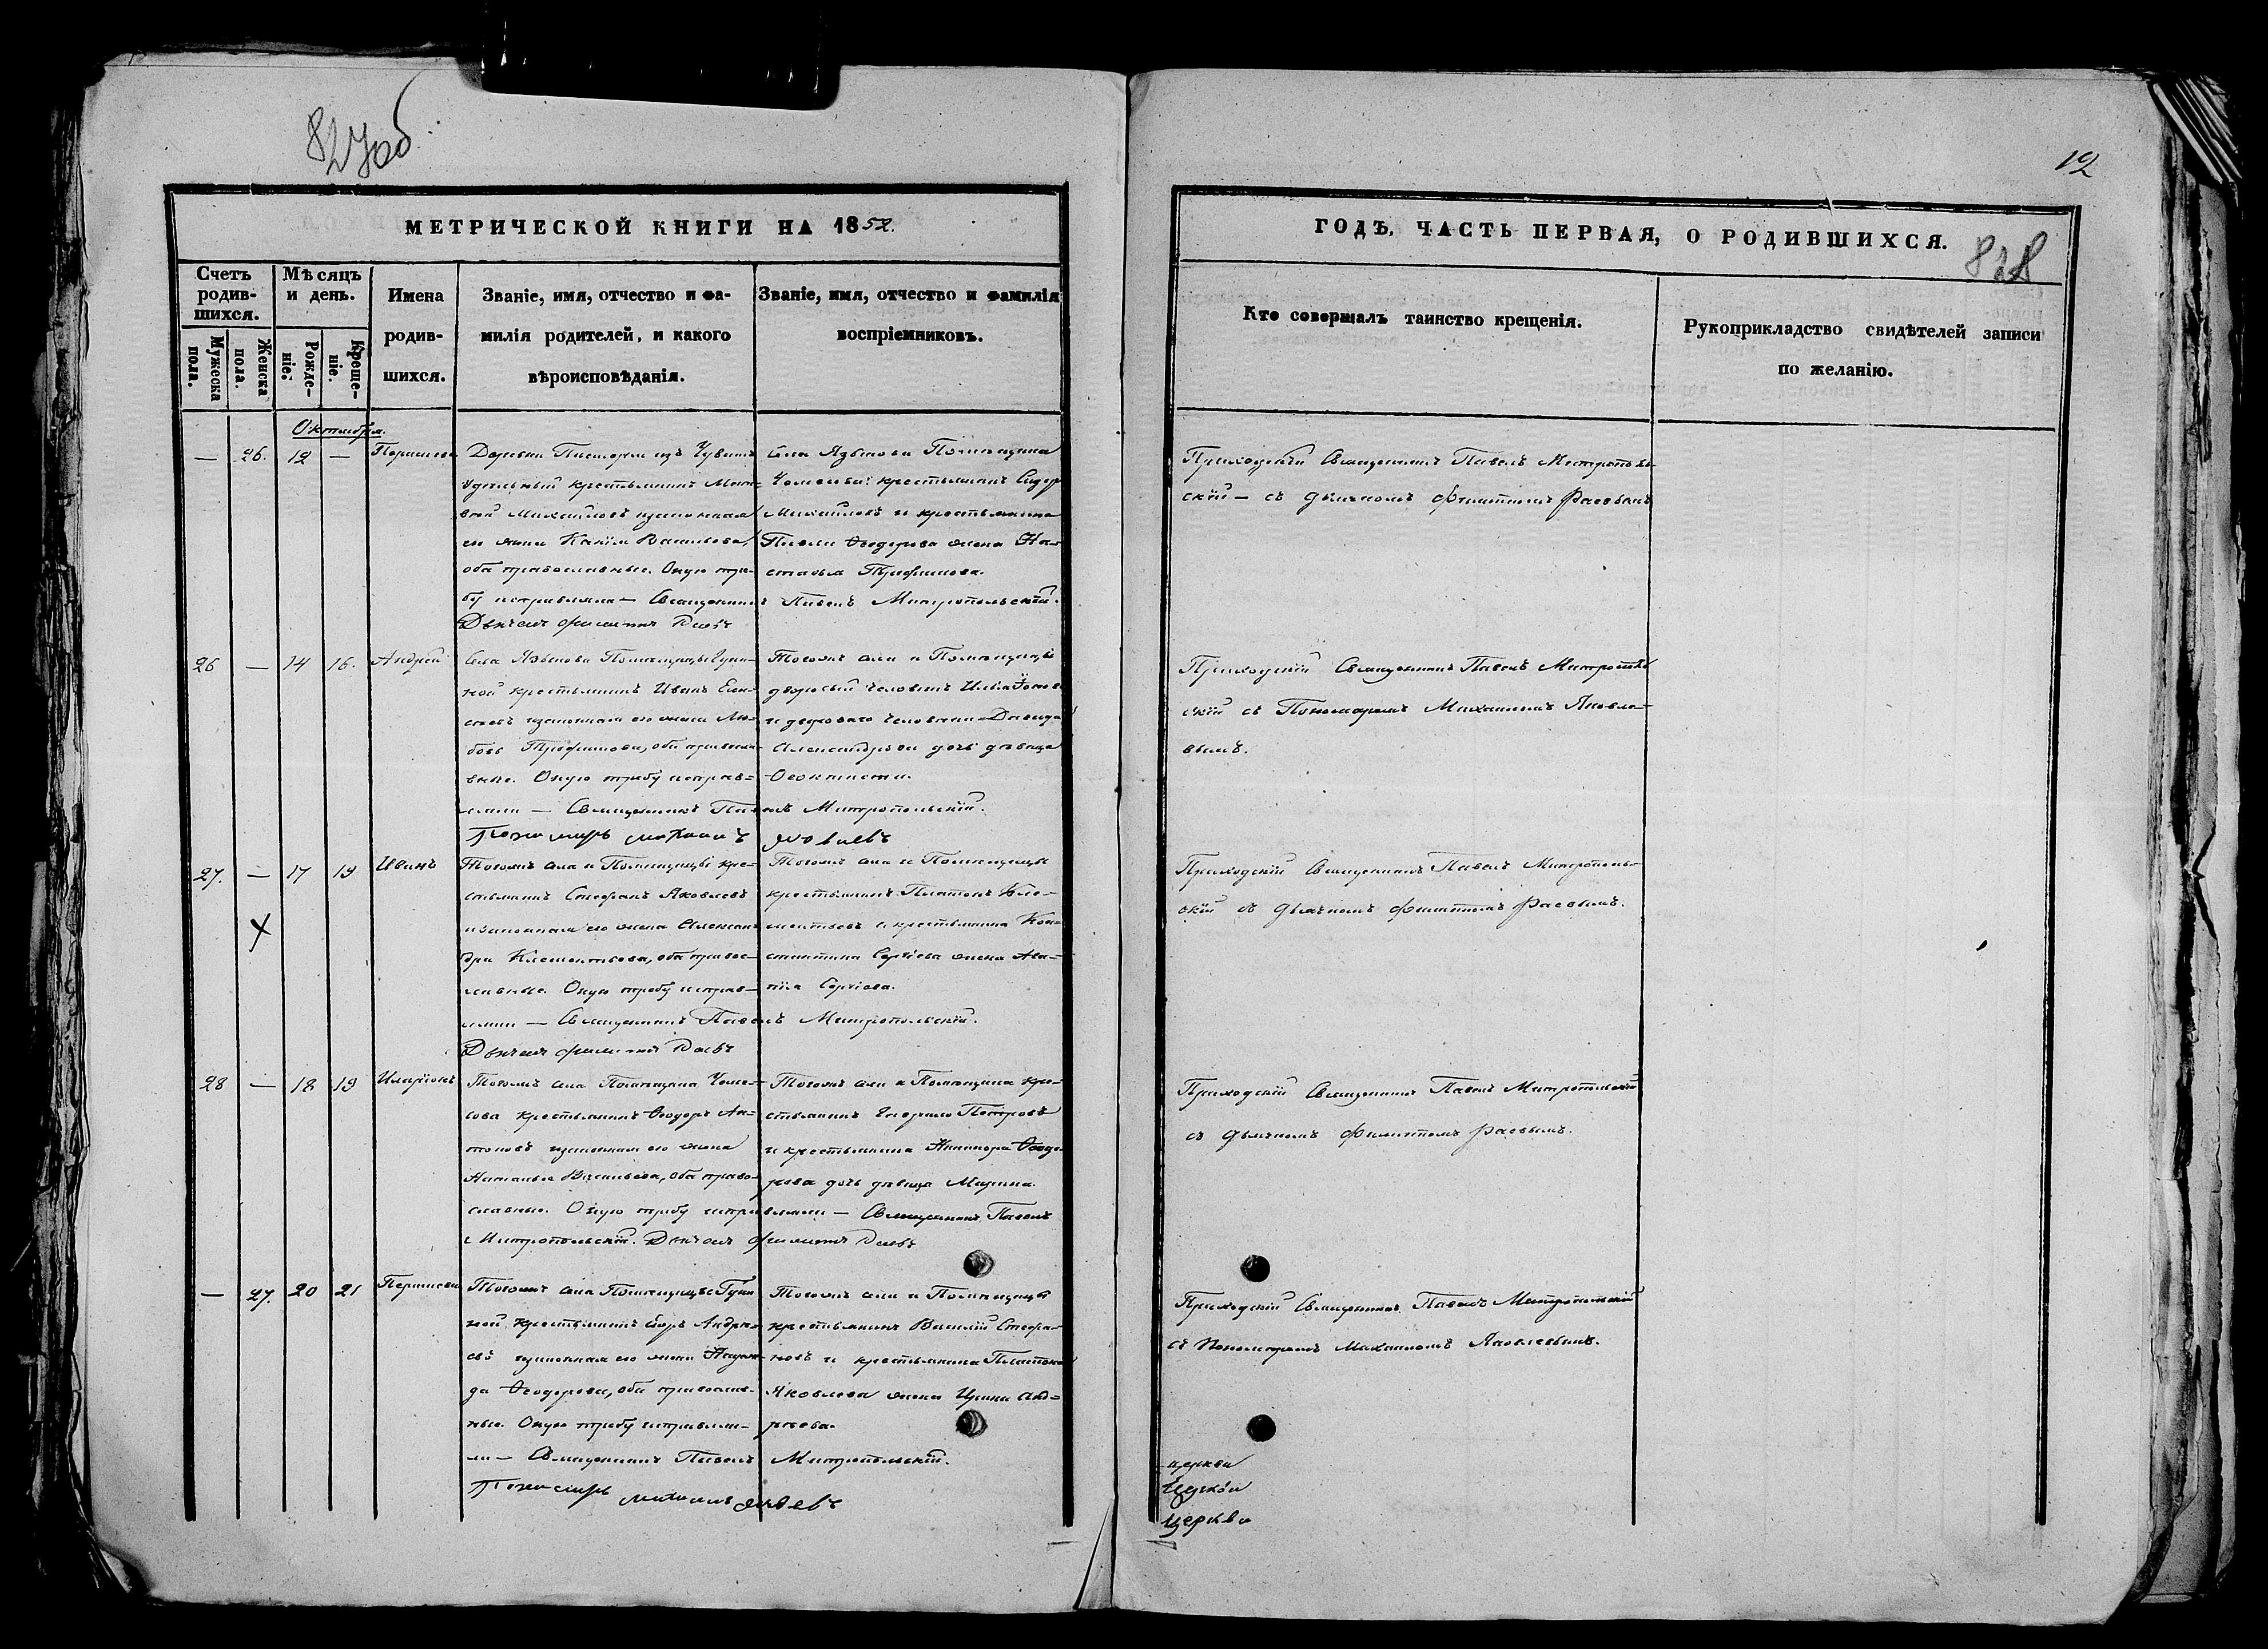 827об
12
МЕТРИЧЕСКОЙ КНИГИ НА 1852.
ГОДЪ, ЧАСТЬ ПЕРВАЯ, О РОДИВШИХСЯ.
828
Счетъ родив-шихся.
Мужеска пола.
Женска пола.
Мѣсяцъ и день.
Рожде-ніе.
Креще-ніе.
Имена
родив-
шихся.
Званіе, имя, отчество и фа-
милія родителей, и какого
вѣроисповѣданія.
Званіе, имя, отчество и фамилія
воспріемниковъ.
Кто совершалъ таинство крещенія.
Рукоприкладство свидѣтелей записи
по желанію.
Октября.
— 26. 12 —
Деревни изъ Чувашъ
удѣльный крестьянинъ
Михайловъ изаконная
его жена Васильева,
оба православные. Оную тре-
бу исправляли — Священникъ Павелъ Митропольскій.
Дьячекъ Филиппъ Раевъ
Села Языкова Помѣщика
крестьянинъ Сидоръ
Михайловъ и крестьянина
Павла Ѳеодорова жена На-
стасья Трофимова.
Приходскій Священникъ Павелъ Митрополь-
скій — съ дьячкомъ Филиппомъ Раевымъ
26 — 14 16. Андрей
Села Языкова Помѣщицы
ной крестьянинъ Иванъ Ели-
сеевъ изаконная его жена Лю-
бовь Трофимова, оба правосла-
вные. Оную требу исправ-
ляли — Священникъ Павелъ Митропольскій.
Пономарь Михаилъ Яковлевъ
Тогожъ села и Помѣщицы
дворовый человѣкъ Илья
и двороваго человѣка Давида
Александрова дочь дѣвица
Ѳеоктиста.
Приходскій Священникъ Павелъ Митрополь-
скій съ Пономаремъ Михаиломъ Яковле-
вымъ.
27. — 17 19 Иванъ
Тогожъ села и Помѣщицы кре-
стьянинъ Стефанъ Яковлевъ
изаконная его жена Алексан-
дра Клементьева, оба право-
славные. Оную требу исправ-
ляли — Священникъ Павелъ Митропольскій.
Дьячекъ Филиппъ Раевъ
Тогожъ села и Помѣщицы
крестьянинъ Платонъ Кле-
ментьевъ и крестьянина Кон-
стантина Сергіева жена Ага-
пія Сергіева.
Приходскій Священникъ Павелъ Митрополь-
скій съ дьячкомъ Филиппомъ Раевымъ.
28 — 18 19 Иларіонъ
Тогожъ села Помѣщика
крестьянинъ Ѳеодоръ Ан-
тоновъ изаконная его жена
Наталья Васильева, оба право-
славные. Оную требу исправляли — Священникъ Павелъ
Митропольскій. Дьячекъ Филиппъ Раевъ
Тогожъ села и Помѣщика кре-
стьянинъ Гаврило Петровъ
и крестьянина Никанора Ѳеодо-
рова дочь дѣвица Марина.
Приходскій Священникъ Павелъ Митропольскій
съ дьячкомъ Филиппомъ Раевымъ.
— 27. 20 21
Тогожъ села Помѣщицы
ной крестьянинъ Егоръ Андре-
евъ изаконная его жена Надеж-
да Ѳеодорова, оба православ-
ные. Оную требу исправля-
ли — Священникъ Павелъ Митропольскій.
Пономарь Михаилъ Яковлевъ
Тогожъ села и Помѣщицы
крестьянинъ Василій Стефа-
новъ и крестьянина Платона
Яковлева жена Ирина Анд-
реева.
Приходскій Священникъ Павелъ Митропольскій
съ Пономаремъ Михаиломъ Яковлевымъ.
церкви
Церкви
Церкви